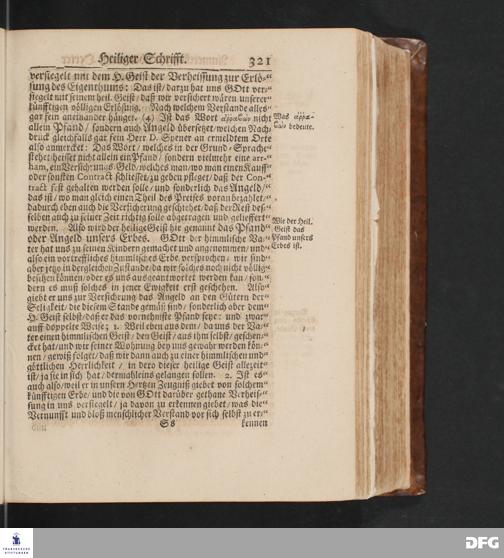 Heiliger Schrifft. 321
versiegelt mit dem H. Geist der Verheissung zur Erlö-
sung des Eigenthums: Das ist/ darzu hat uns GOtt ver-
siegelt mit seinem heil. Geist/ daß wir versichert wären unserer
künfftigen völligen Erlösung. Nach welchem Verstande alles
gar fein aneinander hänget. (4) Ist das Wort ἀῤῥαβὼν nicht
allein Pfand/ sondern auch Angeld übersetzet/ welchen Nach-
druck gleichfalls gar fein Herr D. Spener an ermeldtem Orte
also anmercket: Das Wort/ welches in der Grund-Sprache
stehet/ heisset nicht allein ein Pfand/ sondern vielmehr eine arr-
ham, ein Versicherungs-Geld/ welches man/ wo man einen Kauff
oder sonsten Contract schliesset/ zu geben pfleget/ daß der Con-
tract fest gehalten werden solle/ und sonderlich das Angeld/
das ist/ wo man gleich einen Theil des Preises voran bezahlet/
dadurch eben auch die Versicherung geschiehet/ daß der Rest des-
selben auch zu seiner Zeit richtig solle abgetragen und geliefert
werden. Also wird der heilige Geist hie genannt das Pfand
oder Angeld unsers Erbes. GOtt der himmlische Va-
ter hat uns zu seinen Kindern gemachet und angenommen/ und
also ein vortreffliches himmlisches Erbe versprochen/ wir sind
aber jetzo in dergleichen Zustande/ da wir solches noch nicht völlig
besitzen können/ oder es uns ausgeantwortet werden kan/ son-
dern es muß solches in jener Ewigkeit erst geschehen. Also
giebt er uns zur Versicherung das Angeld an den Gütern der
Seligkeit/ die diesem Stande gemäß sind/ sonderlich aber dem
H. Geist selbst/ daß er das vornehmste Pfand seye: und zwar
auff doppelte Weise; 1. Weil eben aus dem/ da uns der Va-
ter einen himmlischen Geist/ den Geist/ aus ihm selbst/ geschen-
cket hat/ und wir seiner Wohnung bey uns gewahr werden kön-
nen/ gewiß folget/ daß wir dann auch zu einer himmlischen und
göttlichen Herrlichkeit/ in dero dieser heilige Geist allezeit
ist/ ja sie in sich hat/ dermahleins gelangen sollen. 2. Ist es
auch also/ weil er in unsern Hertzen Zeugniß giebet von solchem
künfftigen Erbe/ und die von GOtt darüber gethane Verheis-
sung in uns versiegelt/ ja davon zu erkennen giebet/ was die
Vernunfft und bloß menschlicher Verstand vor sich selbst zu er-
Ss kennen
Was ἀῤῥα-
βὼν bedeute.
Wie der Heil.
Geist das
Pfand unsers
Erbes ist.
FRANCKESCHE
STIFTUNGEN
DFG